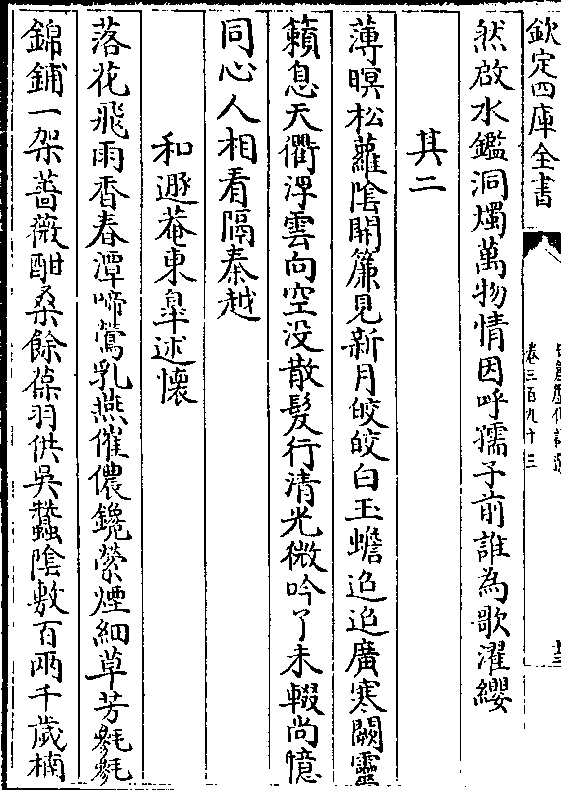 欽定四庫全書
卷三百九十三
然啟水鑑洞燭萬物情因呼孺子前誰為歌濯纓
其二
薄暝松蘿陰開簾見新月皎皎白玉蟾迢迢廣寒闕靈
籟息天衢浮雲向空没散髮行清光微吟了未輟尚憶
同心人相看隔秦越
和遯菴東臯述懷
落花飛雨香春潭啼鶯乳燕催儂鑱縈煙細草芳毿毿
錦鋪一架薔薇酣桑餘葆羽供吳蠶陰敷百兩千歲楠